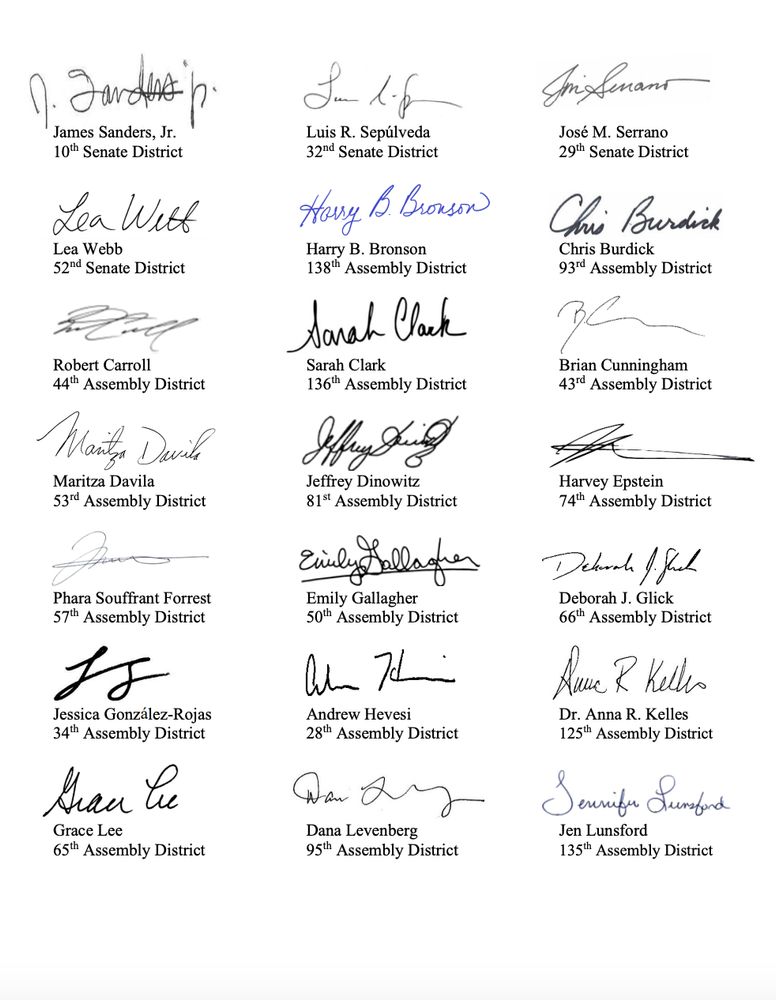 J. Sanders Jr.
James Sanders, Jr.
10th Senate District
Luis R. Sepúlveda
32nd Senate District
José M. Serrano
29th Senate District
Lea Webb
Lea Webb
52nd Senate District
Harry B. Bronson
Harry B. Bronson
138th Assembly District
Chris Burdick
Chris Burdick
93rd Assembly District
Robert Carroll
44th Assembly District
Sarah Clark
Sarah Clark
136th Assembly District
Brian Cunningham
43rd Assembly District
Maritza Davila
Maritza Davila
53rd Assembly District
Jeffrey Dinowitz
81st Assembly District
Harvey Epstein
74th Assembly District
Phara Souffrant Forrest
57th Assembly District
Emily Gallagher
Emily Gallagher
50th Assembly District
Deborah J. Glick
Deborah J. Glick
66th Assembly District
Jessica González-Rojas
34th Assembly District
Andrew Hevesi
28th Assembly District
Anna R Kelles
Dr. Anna R. Kelles
125th Assembly District
Grace Lee
Grace Lee
65th Assembly District
Dana Levenberg
95th Assembly District
Jennifer Lunsford
Jen Lunsford
135th Assembly District